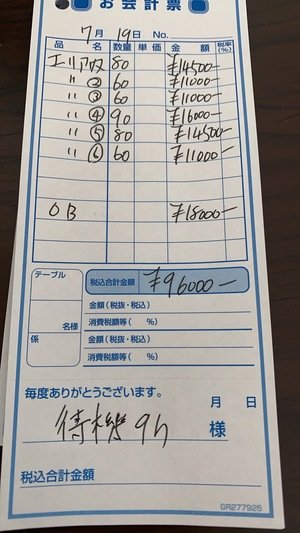 お会計票
7月19日 No.
品名 数量 単価 金額 税率(%)
エリア① 80 ¥14500-
〃② 60 ¥11000-
〃③ 60 ¥11000-
〃④ 90 ¥16000-
〃⑤ 80 ¥14500-
〃⑥ 60 ¥11000-
OB ¥18000-
テーブル
税込合計金額 ¥96000-
金額(税抜・税込)
名様 消費税額等( %)
係 金額(税抜・税込)
消費税額等( %)
毎度ありがとうございます。 月 日
待機9h 様
税込合計金額
GR277925